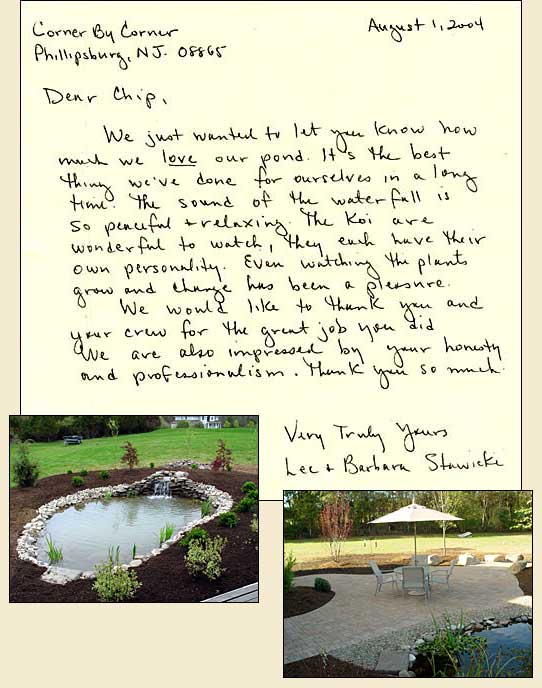 Corner By Corner
Phillipsburg, NJ. 08865
August 1, 2004
Dear Chip,
We just wanted to let you know how
much we love our pond. It's the best
thing we've done for ourselves in a long
time. The sound of the waterfall is
so peaceful + relaxing. The Koi are
wonderful to watch, they each have their
own personality. Even watching the plants
grow and change has been a pleasure.
We would like to thank you and
your crew for the great job you did
We are also impressed by your honesty
and professionalism. Thank you so much.
Very Truly Yours
Lee + Barbara Stawicki